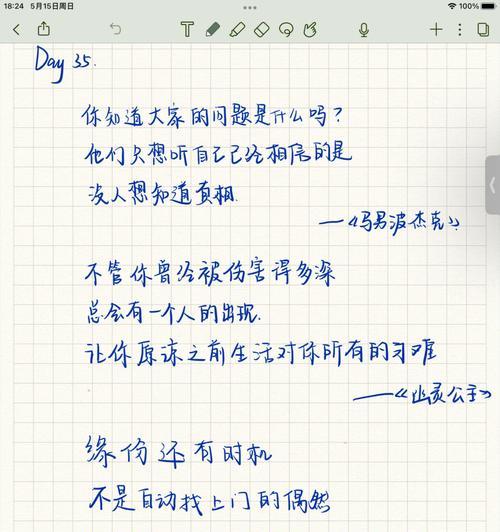 18:24 5月15日周日 100%
Day 35.
你知道大家的问题是什么吗？
他们只想听自己已经相信的是
没人想知道真相.
——《马男波杰克》
不管你曾经被伤害得多深
总会有一个人的出现.
让你原谅之前生活对你所有的刁难
——《幽灵公主》
缘份还有时机
不是自动找上门的偶然